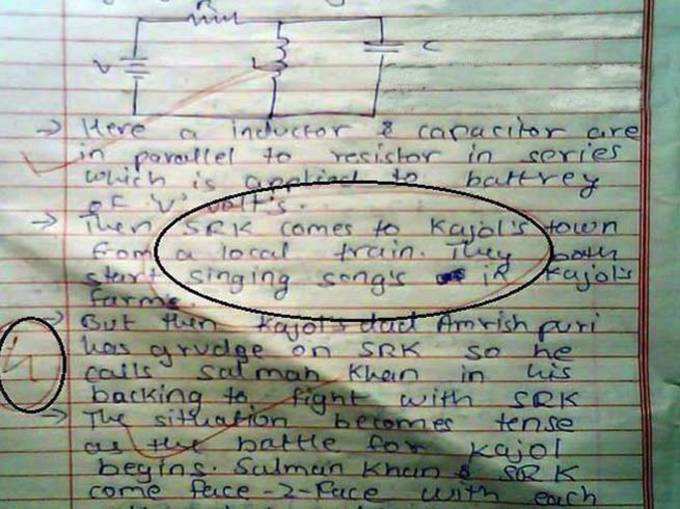 R
V
L
C
→ Here a inductor & capacitor are
in parallel to resistor in series
which is applied to battrey
of 'V' volt's.
→ Then SRK comes to Kajol's town
from a local train. They both
start singing song's in Kajol's
farms.
→ But then Kajol's dad Amrish puri
has grudge on SRK so he
calls Salman Khan in his
backing to fight with SRK
→ The situation becomes tense
as the battle for Kajol
begins. Salman Khan & SRK
come face-2-face with each